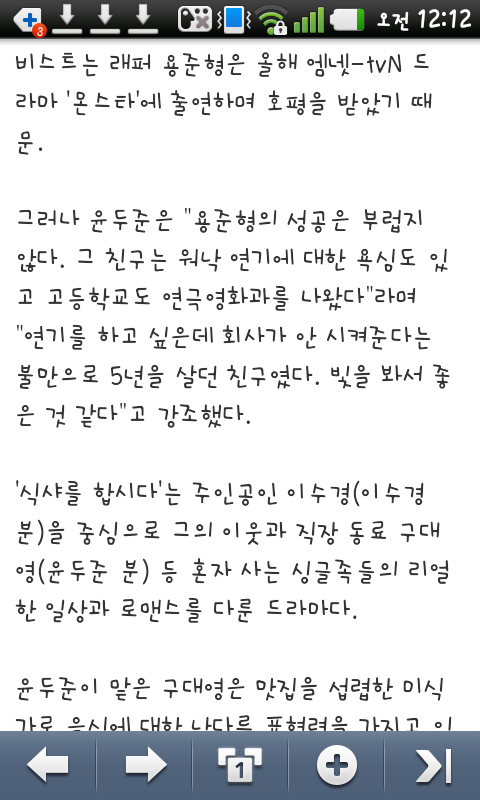 3
오전 12:12
비스트는 래퍼 용준형은 올해 엠넷-tvN 드
라마 '몬스타'에 출연하며 호평을 받았기 때
문.
그러나 윤두준은 "용준형의 성공은 부럽지
않다. 그 친구는 워낙 연기에 대한 욕심도 있
고 고등학교도 연극영화과를 나왔다"라며
"연기를 하고 싶은데 회사가 안 시켜준다는
불만으로 5년을 살던 친구였다. 빛을 봐서 좋
은 것 같다"고 강조했다.
'식샤를 합시다'는 주인공인 이수경(이수경
분)을 중심으로 그의 이웃과 직장 동료 구대
영(윤두준 분) 등 혼자 사는 싱글족들의 리얼
한 일상과 로맨스를 다룬 드라마다.
윤두준이 맡은 구대영은 맛집을 섭렵한 미식
가로 음식에 대한 남다른 표현력을 가지고 있
1